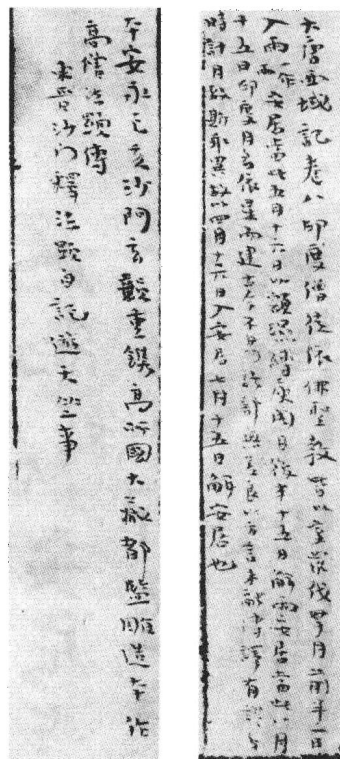 大唐西域記卷八印度僧徒依佛聖教皆以室羅伐拏月前半一日
入雨安居當此五月十六日以頞濕縛庾闍月後半十五日解雨安居當此八月
十五日印度月名依星而建古今不易諸部無差良以方言未融傳譯有謬分
時計月致斯乖異故以四月十六日入安居七月十五日解安居也
本安永己亥沙門玄韻重鐫高麗國大藏都監雕造本作
高僧法顯傳
東晉沙門釋法顯自記遊天竺事